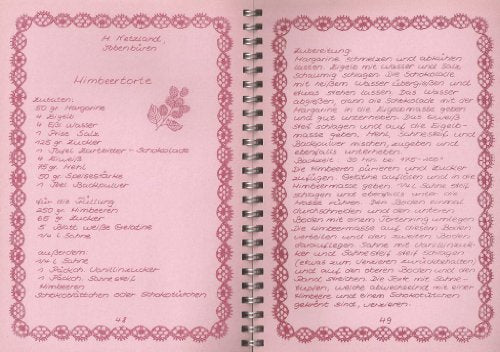 H. Ketzland,
Ibbenbüren
Himbeertorte
Zutaten:
50 gr. Margarine
4 Eigelb
4 Eßl. Wasser
1 Prise Salz
125 gr. Zucker
1 Tafel Zartbitter-Schokolade
4 Eiweiß
75 gr. Mehl
50 gr. Speisestärke
1 Teel. Backpulver
für die Füllung
250 gr. Himbeeren
65 gr. Zucker
5 Blatt weiße Gelatine
1/4 l Sahne
außerdem
1/4 l Sahne
1 Päckch. Vanillinzucker
1 Päckch. Sahnesteif
Himbeeren
Schokoblättchen oder Schokotürchen
48
Zubereitung:
Margarine schmelzen und abkühlen
lassen. Eigelb mit Wasser und Salz
schaumig schlagen. Die Schokolade
mit heißem Wasser übergießen und
etwas stehen lassen. Das Wasser
abgießen, dann die Schokolade mit der
Margarine in die Eigelbmasse geben
und gut unterheben. Das Eiweiß
steif schlagen und auf die Eigelb-
masse geben. Mehl, und
Backpulver mischen, zugeben und
ebenfalls unterheben.
Backzeit: 30 Min. bei 175-200°
Die Himbeeren pürieren und Zucker
zufügen. Gelatine auflösen und in die
Himbeermasse geben. 1/4 l Sahne steif
schlagen und ebenfalls unter die
Masse rühren. Den Boden einmal
durchschneiden und den unteren
Boden mit einem Tortenring umlegen.
Die Himbeermasse auf diesen Boden
verteilen und den zweiten Boden
darauflegen. Sahne mit Vanillinzuk-
ker und Sahnesteif steif schlagen
(etwas zum Verzieren zurückbehalten)
und auf den oberen Boden und den
Rand streichen. Die Torte mit Sahne-
tupfen, welche abwechselnd mit einer
Himbeere und einem Schokotürchen
gekrönt sind, verzieren.
49